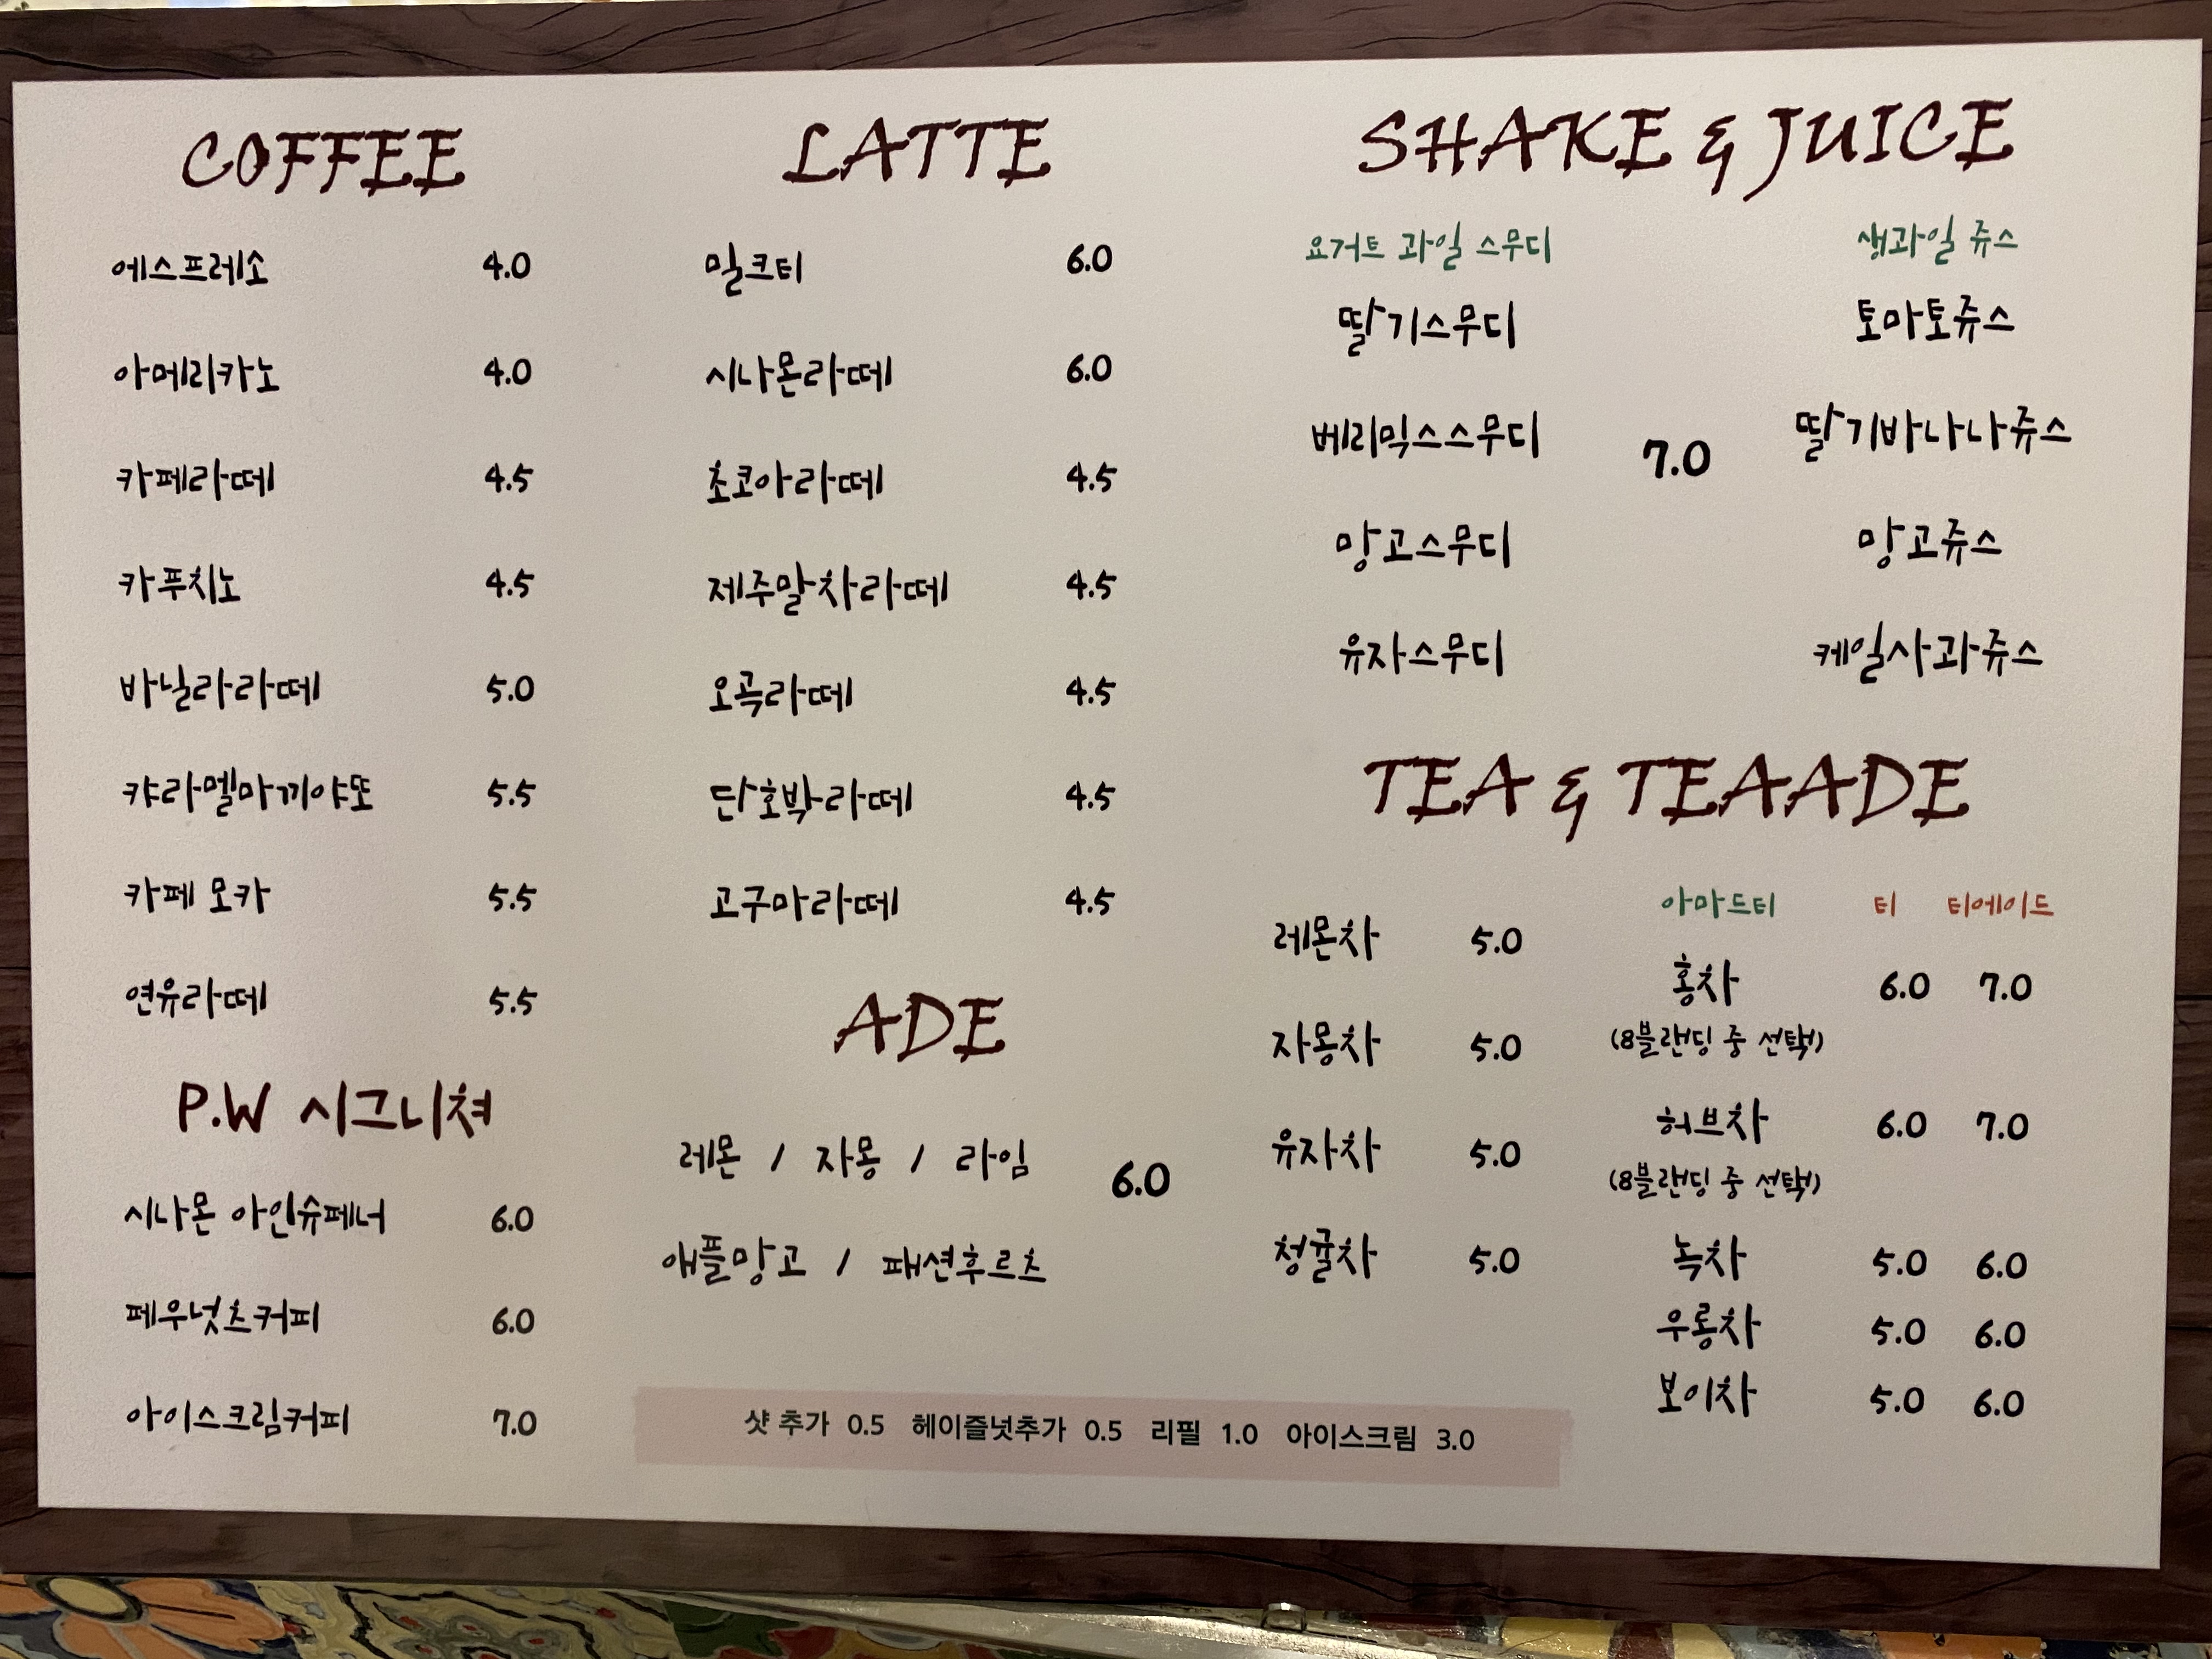 COFFEE
에스프레소 4.0
아메리카노 4.0
카페라떼 4.5
카푸치노 4.5
바닐라라떼 5.0
캬라멜마끼야또 5.5
카페 모카 5.5
연유라떼 5.5
P.W 시그니쳐
시나몬 아인슈페너 6.0
페우넛츠커피 6.0
아이스크림커피 7.0
LATTE
밀크티 6.0
시나몬라떼 6.0
초코아라떼 4.5
제주말차라떼 4.5
오곡라떼 4.5
단호박라떼 4.5
고구마라떼 4.5
ADE
레몬 / 자몽 / 라임
6.0
애플망고 / 패션후르츠
샷 추가 0.5 헤이즐넛추가 0.5 리필 1.0 아이스크림 3.0
SHAKE & JUICE
요거트 과일 스무디
딸기스무디
베리믹스스무디
망고스무디
유자스무디
7.0
생과일 쥬스
토마토쥬스
딸기바나나쥬스
망고쥬스
케일사과쥬스
TEA & TEAADE
레몬차 5.0
자몽차 5.0
유자차 5.0
청귤차 5.0
아마드티 티 티에이드
홍차 6.0 7.0
(8블랜딩 중 선택)
허브차 6.0 7.0
(8블랜딩 중 선택)
녹차 5.0 6.0
우롱차 5.0 6.0
보이차 5.0 6.0